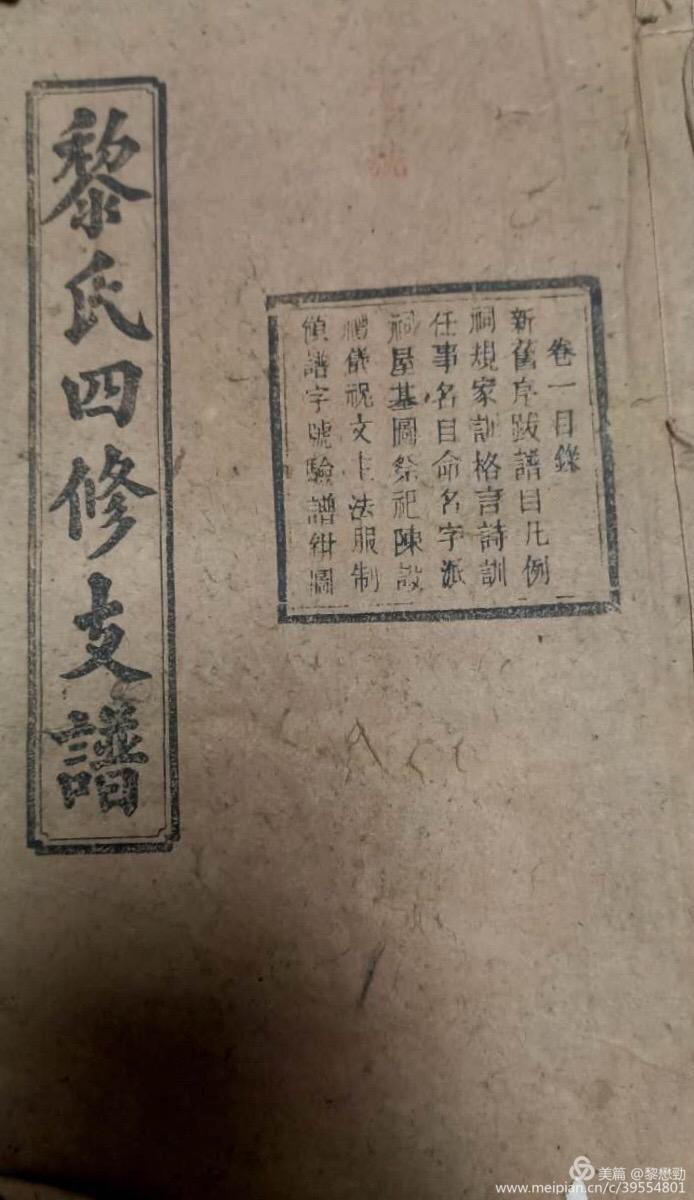 黎氏四修支譜
卷一目錄
新舊序跋譜目凡例
祠規家訓格言詩訓
任事名目命名字派
祠屋基圖祭祀陳設
禮儀祝文主法服制
領譜字號驗譜鈐圖
譜
美篇 @黎懋勁
www.meipian.cn/c/39554801